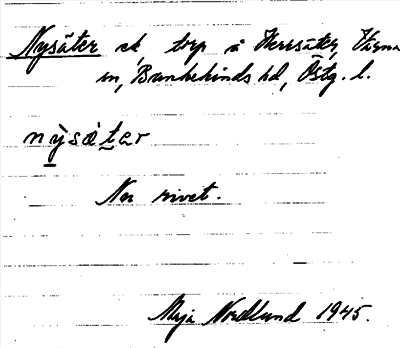 Nysäter ek, torp å Herrsäter, Värna
sn, Bankekinds hd, Östg. l.
nỳsätər
Nu rivet.
Maja Nordlund 1945.